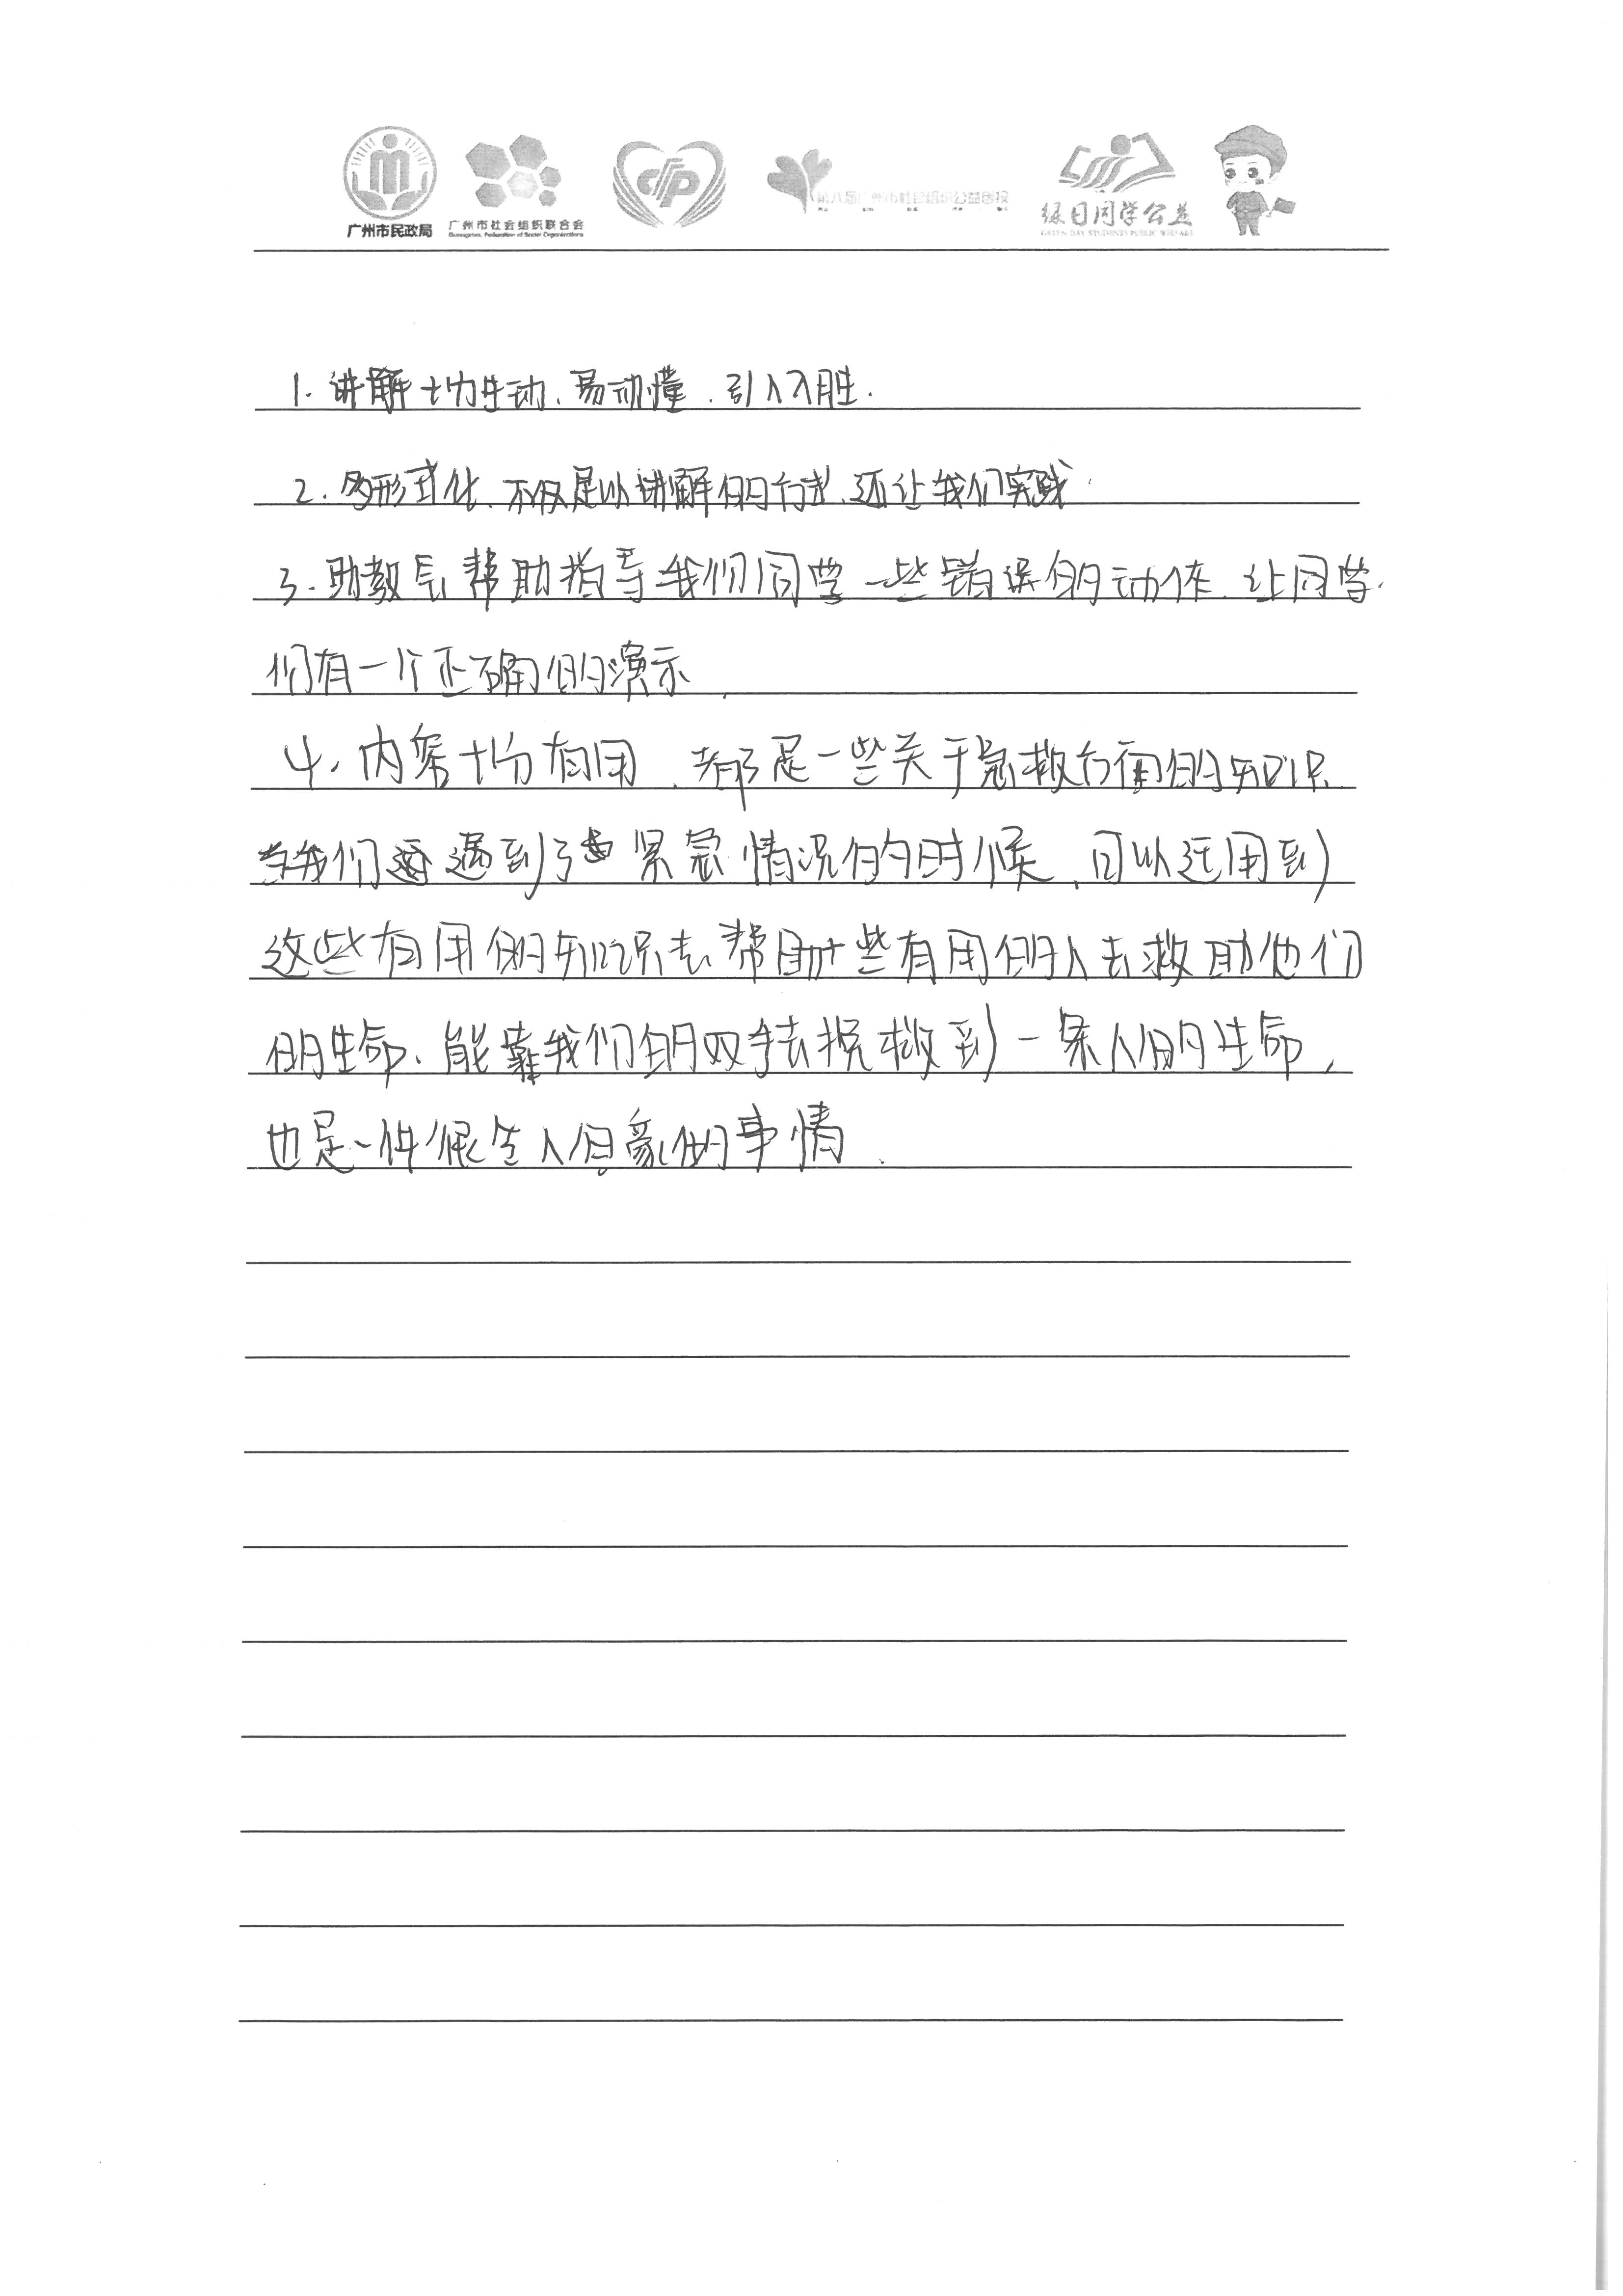 广州市民政局 广州市社会组织联合会 第八届广州市社会组织公益创投 绿日同学公益
Guangzhou Federation of Social Organizations GREEN DAY STUDENTS PUBLIC WELFARE
1. 讲解十分生动、易动懂、引人入胜.
2. 多形式化、不仅是以讲解的行式、还让我们实践.
3. 助教员帮助指导我们同学一些错误的动作、让同学
们有一个正确的演示、
4、内容十分有用、都是一些关于急救方面的知识、
当我们遇到了紧急情况的时候、可以运用到
这些有用的知识去帮助一些有用的人去救助他们
的生命、能靠我们的双手去挽救到一条人的生命,
也是一件很令人自豪的事情、